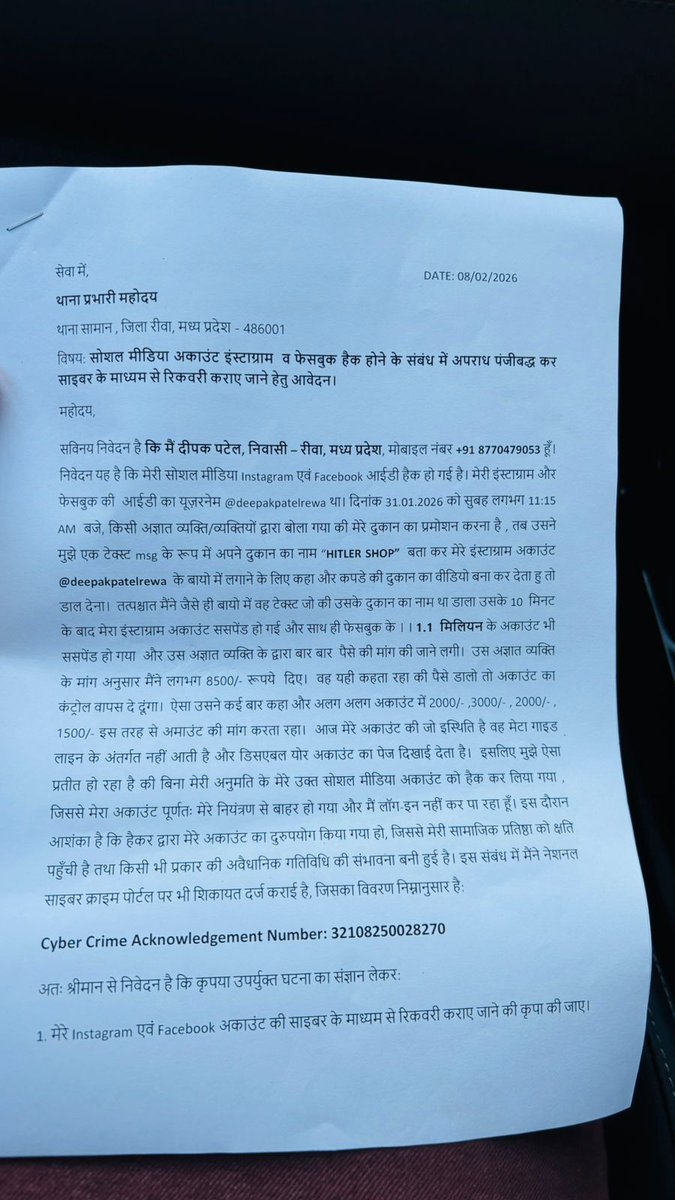 सेवा में,
DATE: 08/02/2026
थाना प्रभारी महोदय
थाना सामान , जिला रीवा, मध्य प्रदेश - 486001
विषय: सोशल मीडिया अकाउंट इंस्टाग्राम व फेसबुक हैक होने के संबंध में अपराध पंजीबद्ध कर
साइबर के माध्यम से रिकवरी कराए जाने हेतु आवेदन।
महोदय,
सविनय निवेदन है कि मैं दीपक पटेल, निवासी – रीवा, मध्य प्रदेश, मोबाइल नंबर +91 8770479053 हूँ।
निवेदन यह है कि मेरी सोशल मीडिया Instagram एवं Facebook आईडी हैक हो गई है। मेरी इंस्टाग्राम और
फेसबुक की आईडी का यूज़रनेम @deepakpatelrewa था। दिनांक 31.01.2026 को सुबह लगभग 11:15
AM बजे, किसी अज्ञात व्यक्ति/व्यक्तियों द्वारा बोला गया की मेरे दुकान का प्रमोशन करना है , तब उसने
मुझे एक टेक्स्ट msg के रूप में अपने दुकान का नाम “HITLER SHOP” बता कर मेरे इंस्टाग्राम अकाउंट
@deepakpatelrewa के बायो में लगाने के लिए कहा और कपडे की दुकान का वीडियो बना कर देता हु तो
डाल देना। तत्पश्चात मैंने जैसे ही बायो में वह टेक्स्ट जो की उसके दुकान का नाम था डाला उसके 10 मिनट
के बाद मेरा इंस्टाग्राम अकाउंट ससपेंड हो गई और साथ ही फेसबुक के । । 1.1 मिलियन के अकाउंट भी
ससपेंड हो गया और उस अज्ञात व्यक्ति के द्वारा बार बार पैसे की मांग की जाने लगी। उस अज्ञात व्यक्ति
के मांग अनुसार मैंने लगभग 8500/- रूपये दिए। वह यही कहता रहा की पैसे डालो तो अकाउंट का
कंट्रोल वापस दे दूंगा। ऐसा उसने कई बार कहा और अलग अलग अकाउंट में 2000/- ,3000/- , 2000/- ,
1500/- इस तरह से अमाउंट की मांग करता रहा। आज मेरे अकाउंट की जो इस्थिति है वह मेटा गाइड
लाइन के अंतर्गत नहीं आती है और डिसएबल योर अकाउंट का पेज दिखाई देता है। इसलिए मुझे ऐसा
प्रतीत हो रहा है की बिना मेरी अनुमति के मेरे उक्त सोशल मीडिया अकाउंट को हैक कर लिया गया ,
जिससे मेरा अकाउंट पूर्णतः मेरे नियंत्रण से बाहर हो गया और मैं लॉग-इन नहीं कर पा रहा हूँ। इस दौरान
आशंका है कि हैकर द्वारा मेरे अकाउंट का दुरुपयोग किया गया हो, जिससे मेरी सामाजिक प्रतिष्ठा को क्षति
पहुँची है तथा किसी भी प्रकार की अवैधानिक गतिविधि की संभावना बनी हुई है। इस संबंध में मैंने नेशनल
साइबर क्राइम पोर्टल पर भी शिकायत दर्ज कराई है, जिसका विवरण निम्नानुसार है:
Cyber Crime Acknowledgement Number: 32108250028270
अतः श्रीमान से निवेदन है कि कृपया उपर्युक्त घटना का संज्ञान लेकर:
1. मेरे Instagram एवं Facebook अकाउंट की साइबर के माध्यम से रिकवरी कराए जाने की कृपा की जाए।